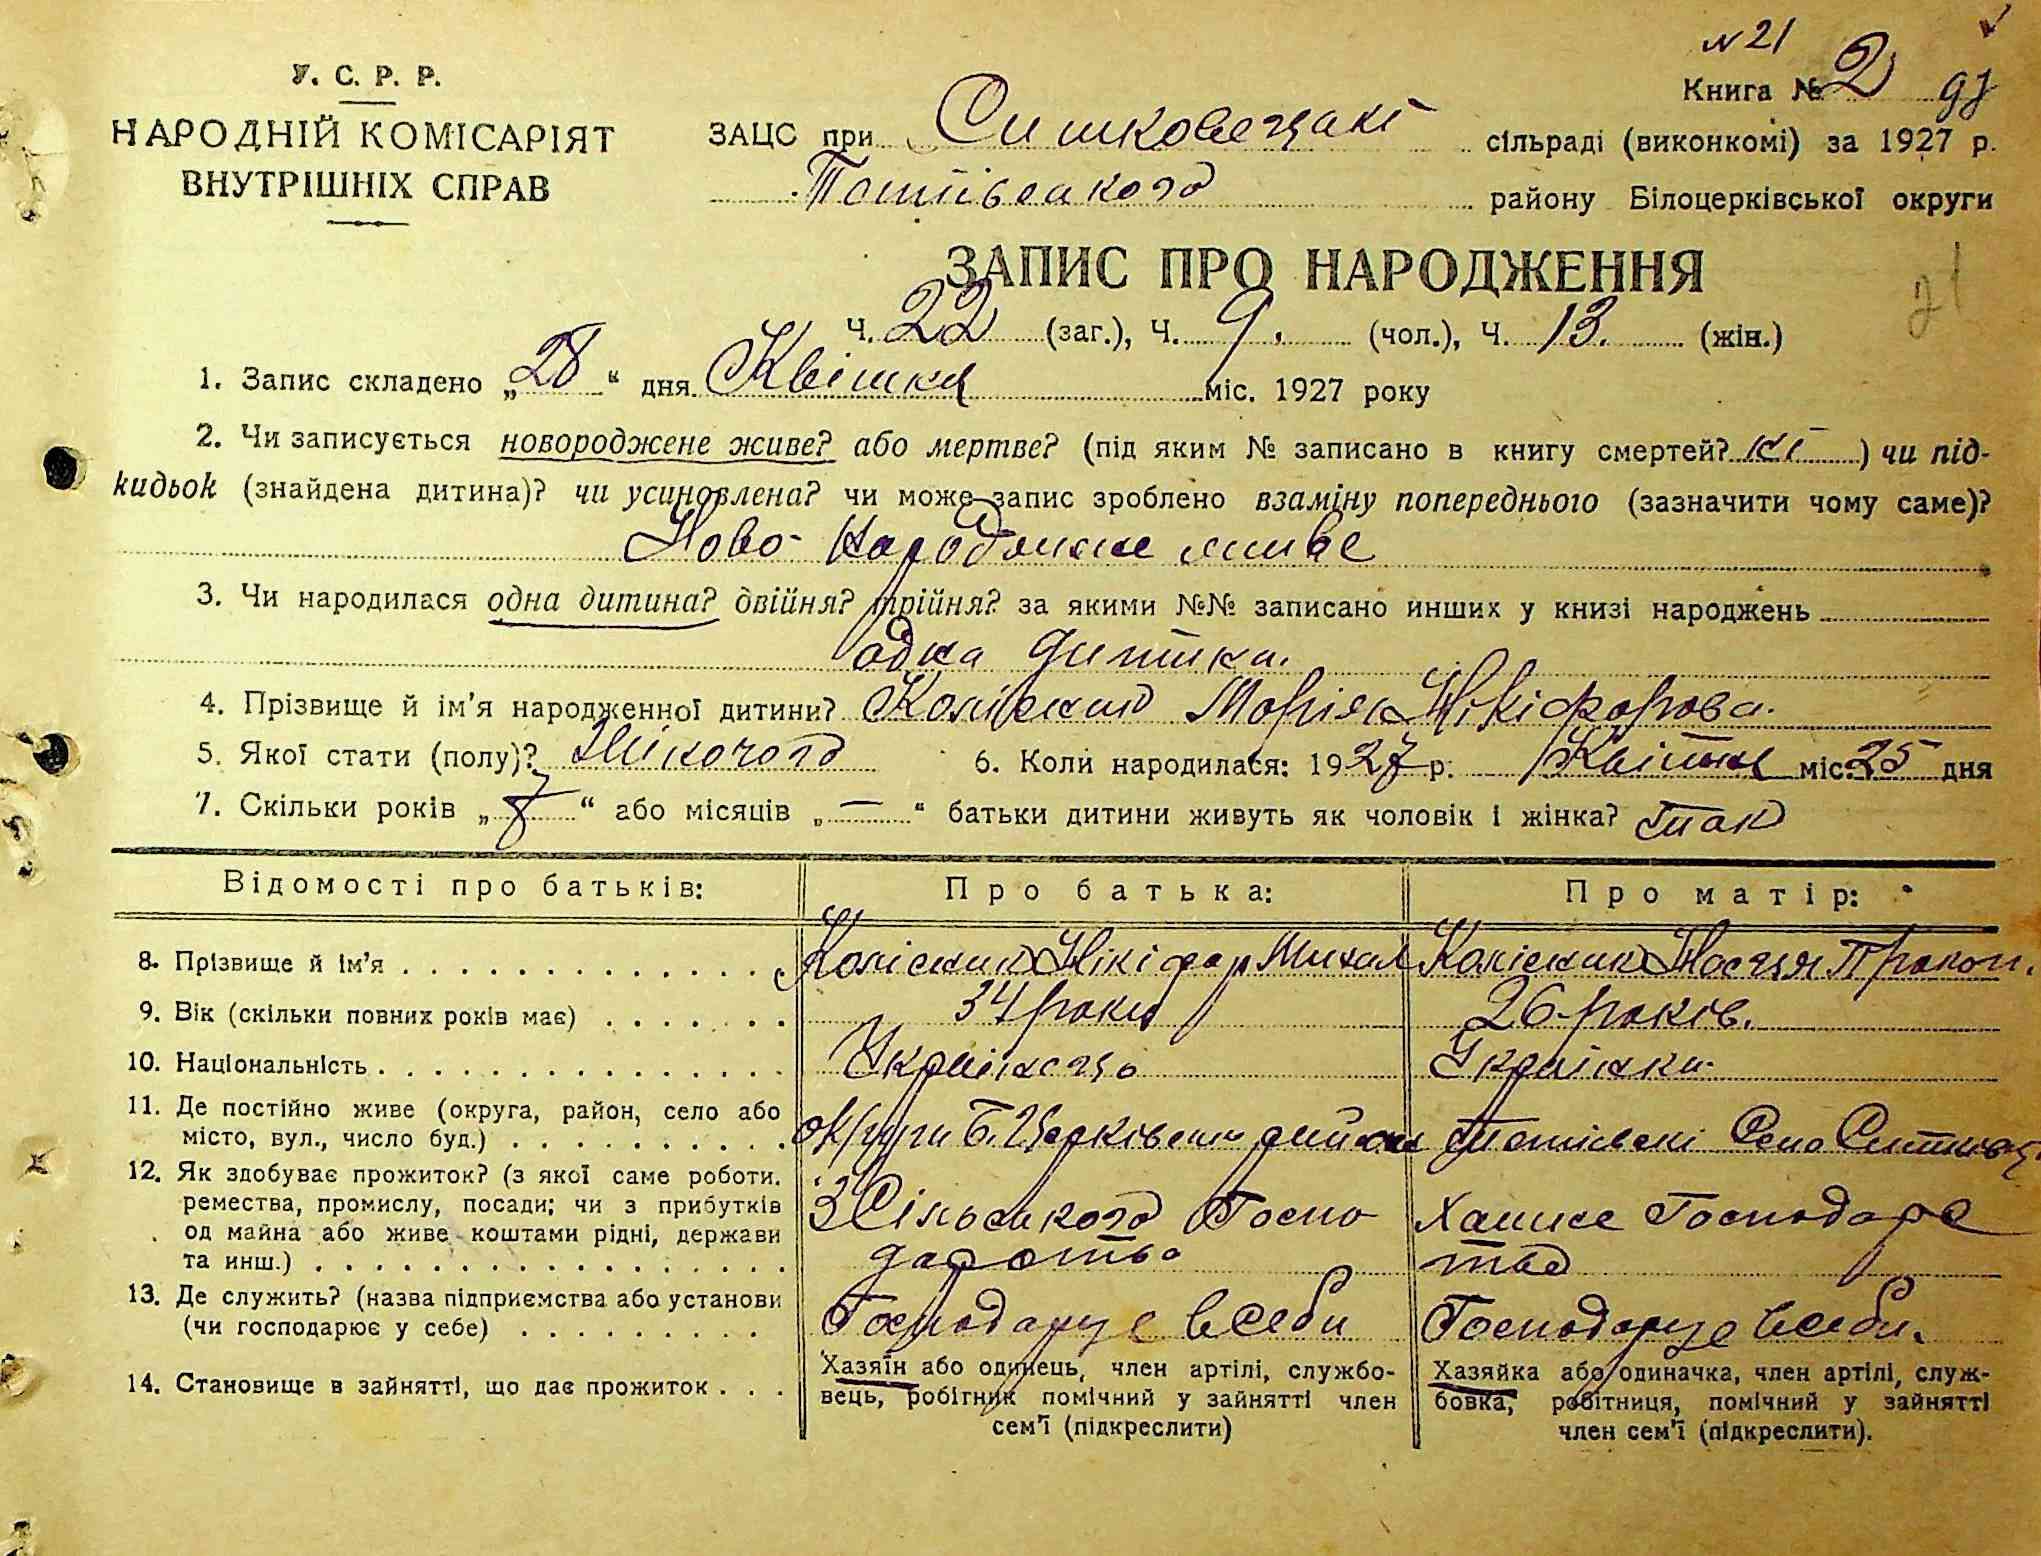 № 21
У. С. Р. Р.
Книга № 2
НАРОДНІЙ КОМІСАРІЯТ
ВНУТРІШНІХ СПРАВ
ЗАЦС при сільраді (виконкомі) за 1927 р.
району Білоцерківської округи
ЗАПИС ПРО НАРОДЖЕННЯ
21
Ч. 22 (заг.), Ч. 9. (чол.), Ч. 13. (жін.)
1. Запис складено „28" дня Квітня міс. 1927 року
2. Чи записується новороджене живе? або мертве? (під яким № записано в книгу смертей? ні) чи під-
кидьок (знайдена дитина)? чи усиновлена? чи може запис зроблено взаміну попереднього (зазначити чому саме)?
Ново-народжине живе
3. Чи народилася одна дитина? двійня? трійня? за якими №№ записано инших у книзі народжень
одна дитина.
4. Прізвище й ім'я народженної дитини? Колісник Марія Нікіфорова.
5. Якої стати (полу)? Жіночого 6. Коли народилася: 1927 р. Квітня міс. 25 дня
7. Скільки років „7" або місяців „—" батьки дитини живуть як чоловік і жінка? Так
Відомості про батьків: Про батька: Про матір:
8. Прізвище й ім'я . . . . Колісник Нікіфор Михал Колісник Настя Прокоп.
9. Вік (скільки повних років має) . . . . 34 роки 26 років.
10. Національність . . . . Українець Українка.
11. Де постійно живе (округа, район, село або
місто, вул., число буд.) . . . . округи Б. Церківськи района Село
12. Як здобуває прожиток? (з якої саме роботи.
ремества, промислу, посади; чи з прибутків
од майна або живе коштами рідні, держави
та инш.) . . . .
З Сільського Госпо
дарства
Хатнє Господарс
тво
13. Де служить? (назва підприємства або установи
(чи господарює у себе) . . . . Господарує в себи Господарує в себи.
14. Становище в зайнятті, що дає прожиток . . .
Хазяїн або одинець, член артілі, службо-
вець, робігник помічний у зайнятті член
сем'ї (підкреслити)
Хазяйка або одиначка, член артілі, служ-
бовка, робітниця, помічний у зайнятті
член сем'ї (підкреслити).